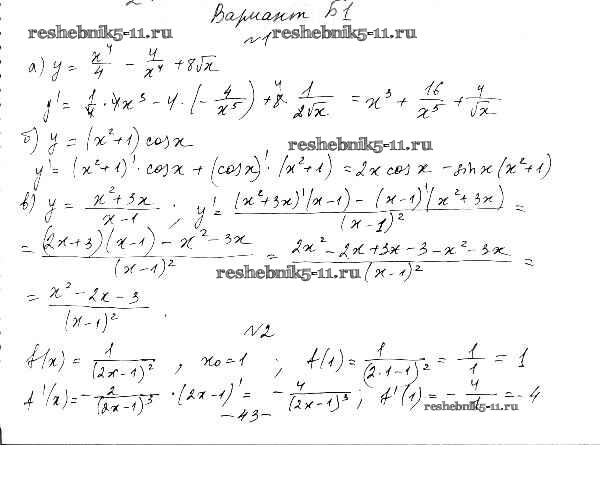 Вариант Б1
reshebnik5-11.ru №1 reshebnik5-11.ru
а) y = x⁴/4 - 4/x⁴ + 8√x
y' = 1/4 · 4x³ - 4 · (-4/x⁵) + 8⁴ · 1/2√x = x³ + 16/x⁵ + 4/√x
б) y = (x²+1) cosx reshebnik5-11.ru
y' = (x²+1)' · cosx + (cosx)' · (x²+1) = 2x cosx - sinx(x²+1)
в) y = x²+3x/x-1 . y' = (x²+3x)'(x-1) - (x-1)'(x²+3x)/(x-1)² =
= (2x+3)(x-1) - x² - 3x/(x-1)² = 2x² - 2x + 3x - 3 - x² - 3x/(x-1)² =
reshebnik5-11.ru
= x² - 2x - 3/(x-1)² .
№2
f(x) = 1/(2x-1)² , x₀ = 1 ; f(1) = 1/(2·1-1)² = 1/1 = 1
f'(x) = - 2/(2x-1)³ · (2x-1)' = - 4/(2x-1)³ ; f'(1) = - 4/1 = -4
reshebnik5-11.ru
-43-